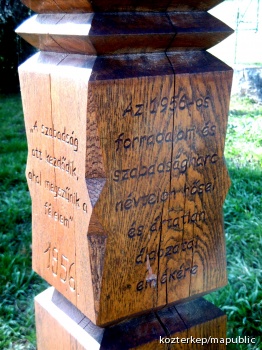 „A szabadság
ott kezdődik,
ahol megszűnik a
félelem"
1956
Az 1956-os
forradalom és
szabadságharc
névtelen hősei
és ártatlan
áldozatai
emlékére
kozterkep/mapublic